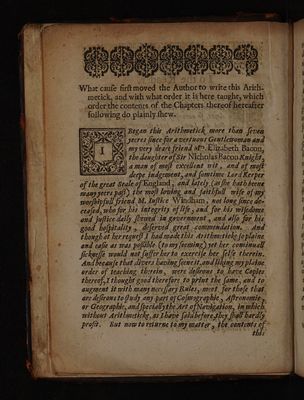 What cauſe firſt moved the Author to write this Arith-
metick, and with what order it is here taught, which
order the contents of the Chapters thereof hereafter
following do plainly ſhew.
I Began this Arithmetick more than ſeven
yeeres ſince for a vertuous Gentlewoman and
my very dear friend Mrs. Elizabeth Bacon,
the daughter of Sir Nicholas Bacon Knight,
a man of moſt excellent wit, and of moſt
deepe judgement, and ſometime Lord Keeper
of the great Seale of England, and lately (as ſhe hath beene
many yeers paſt) the moſt loving and faithfull wife of my
worſhipfull friend M. Iuſtice Windham, not long ſince de-
ceaſed, who for his integrity of life, and for his wiſedome
and juſtice daily ſhewed in government, and alſo for his
good hoſpitality, deſerved great commendation. And
though at her requeſt I had made this Arithmeticke ſo plaine
and eaſie as was poſſible (to my ſeeming) yet her continuall
ſickneſſe would not ſuffer her to exerciſe her ſelfe therein.
And becauſe that divers having ſeene it, and liking my plaine
order of teaching therein, were deſirous to have Copies
thereof, I thought good therefore to print the ſame, and to
augment it with many neceſſary Rules, meet for thoſe that
are deſirous to ſtudy any part of Coſmographie, Aſtronomie,
or Geographie, and ſpecially the Art of Navigation, in which
without Arithmeticke, as I have ſaid before, they ſhall hardly
profit. But now to returne to my matter, the contents of
this